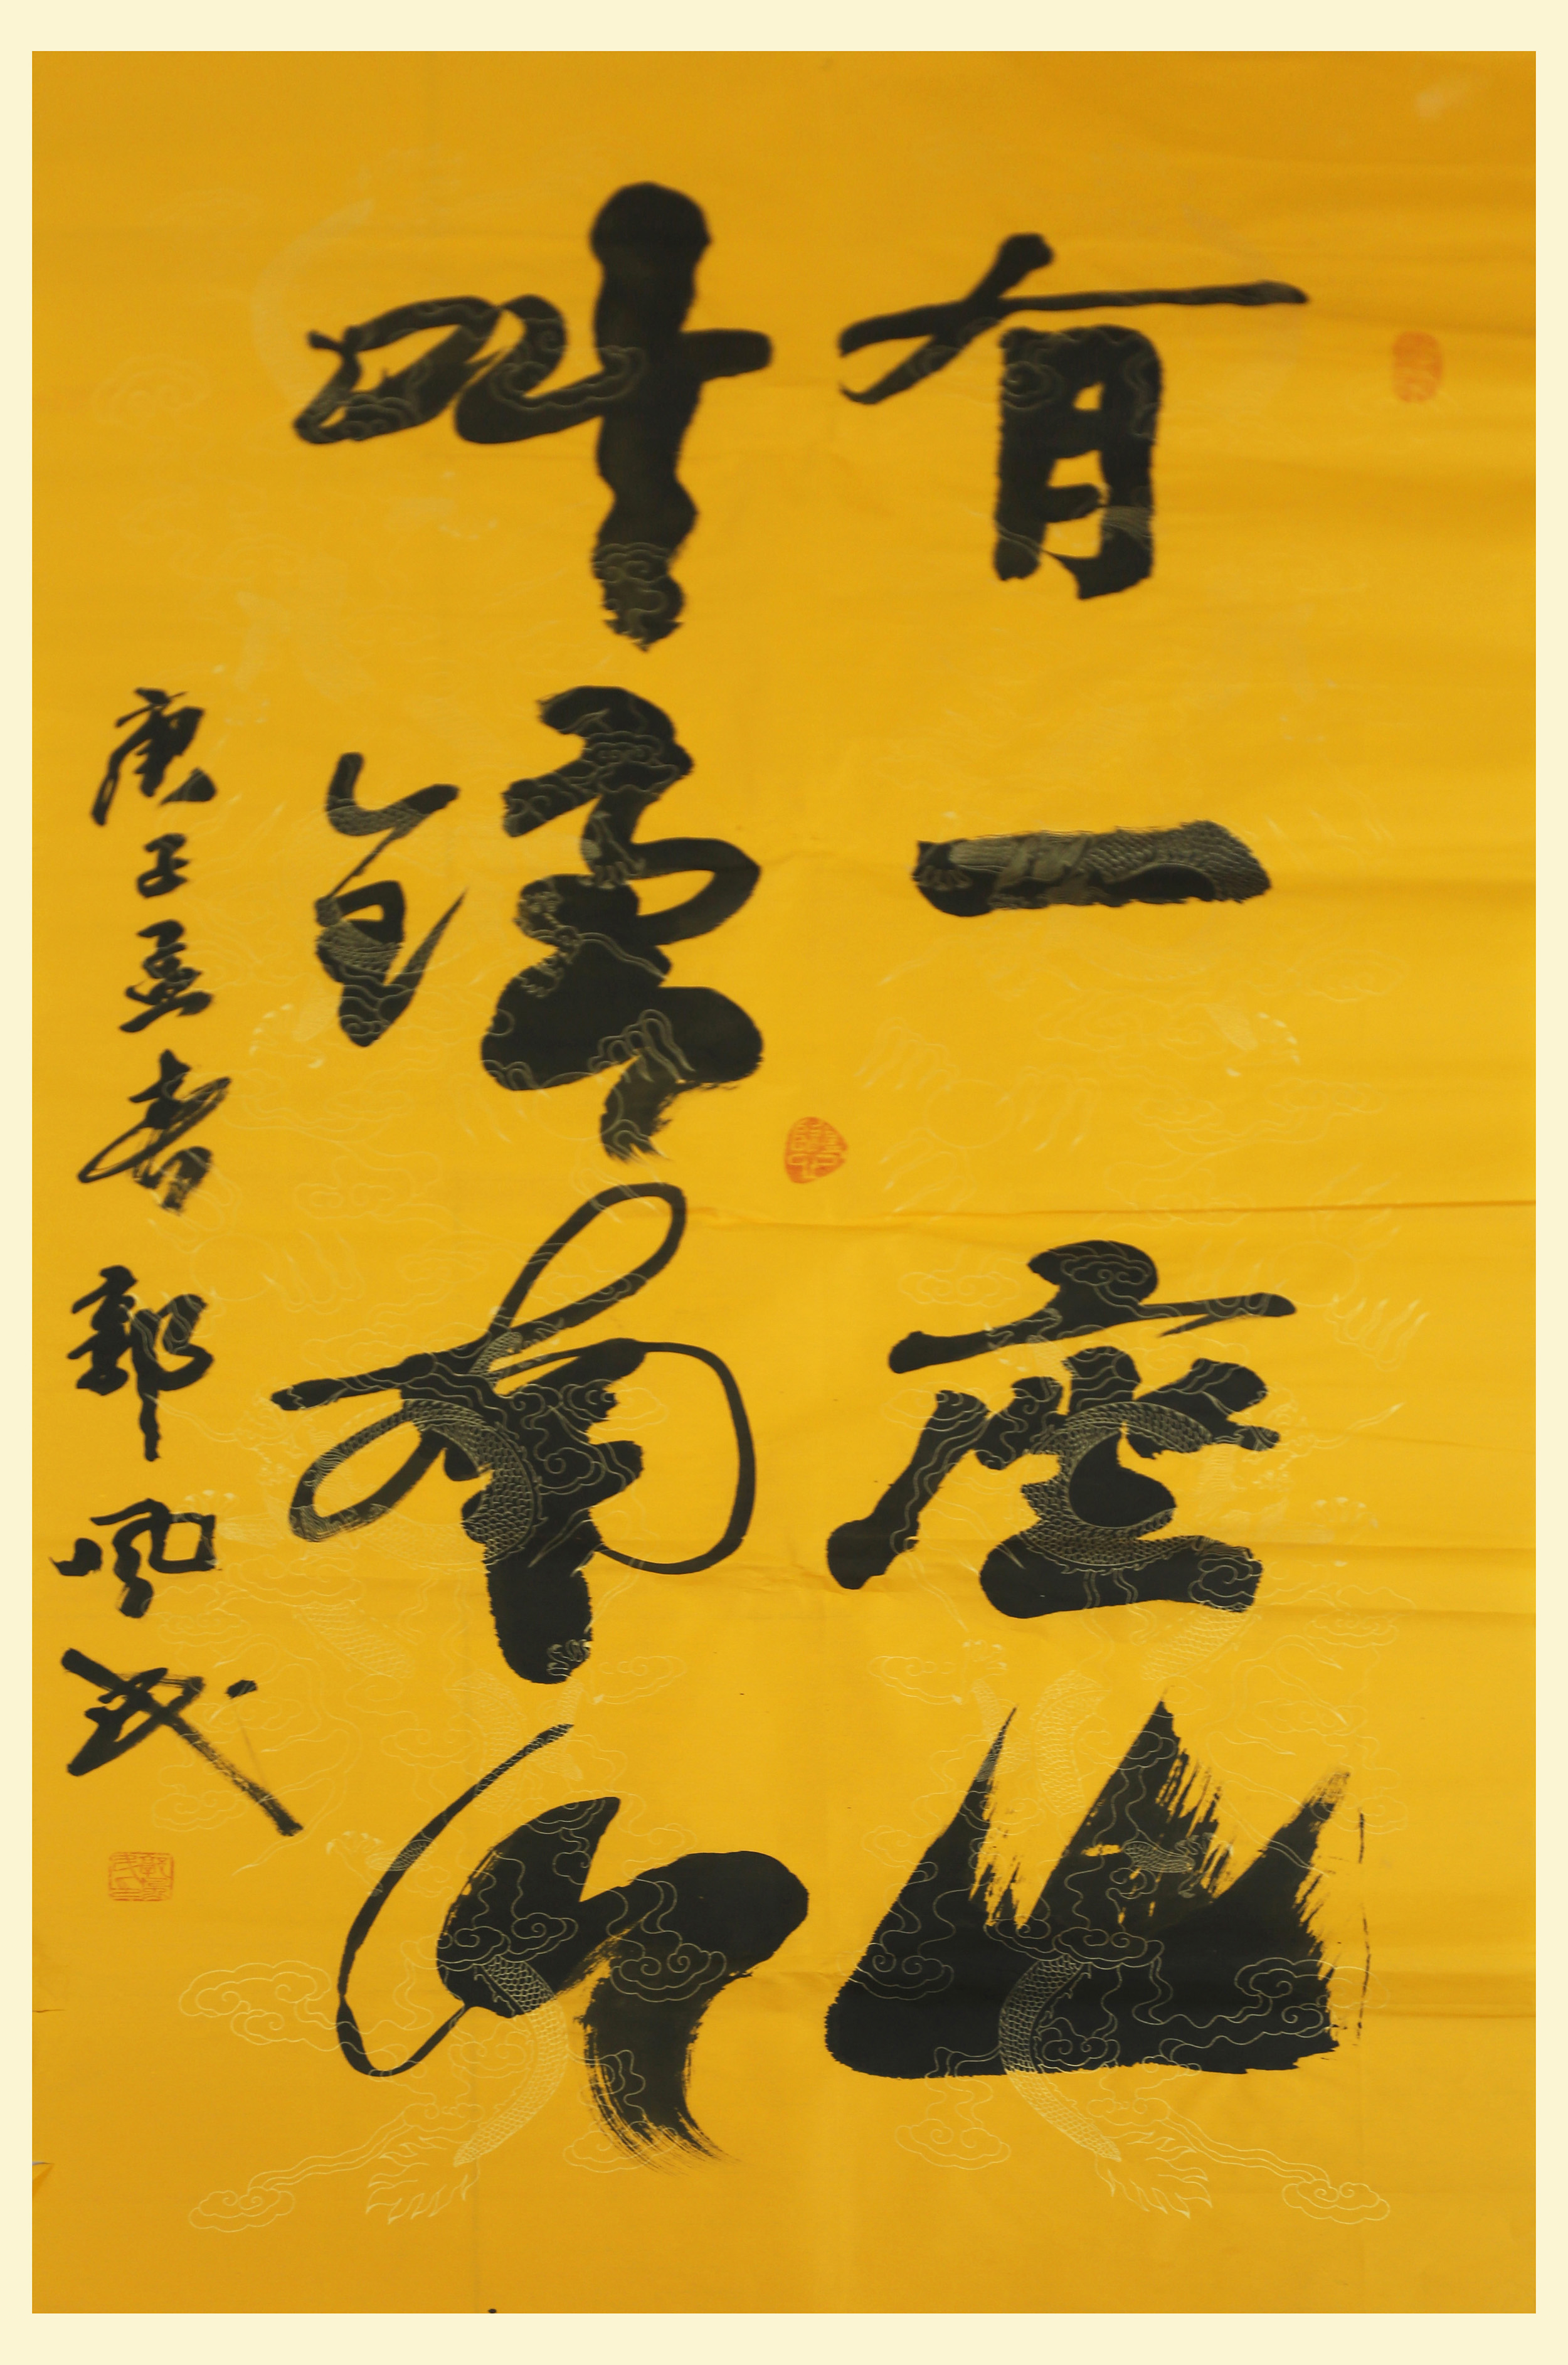 有一座山
叫钟南山
庚子孟春 郭风武